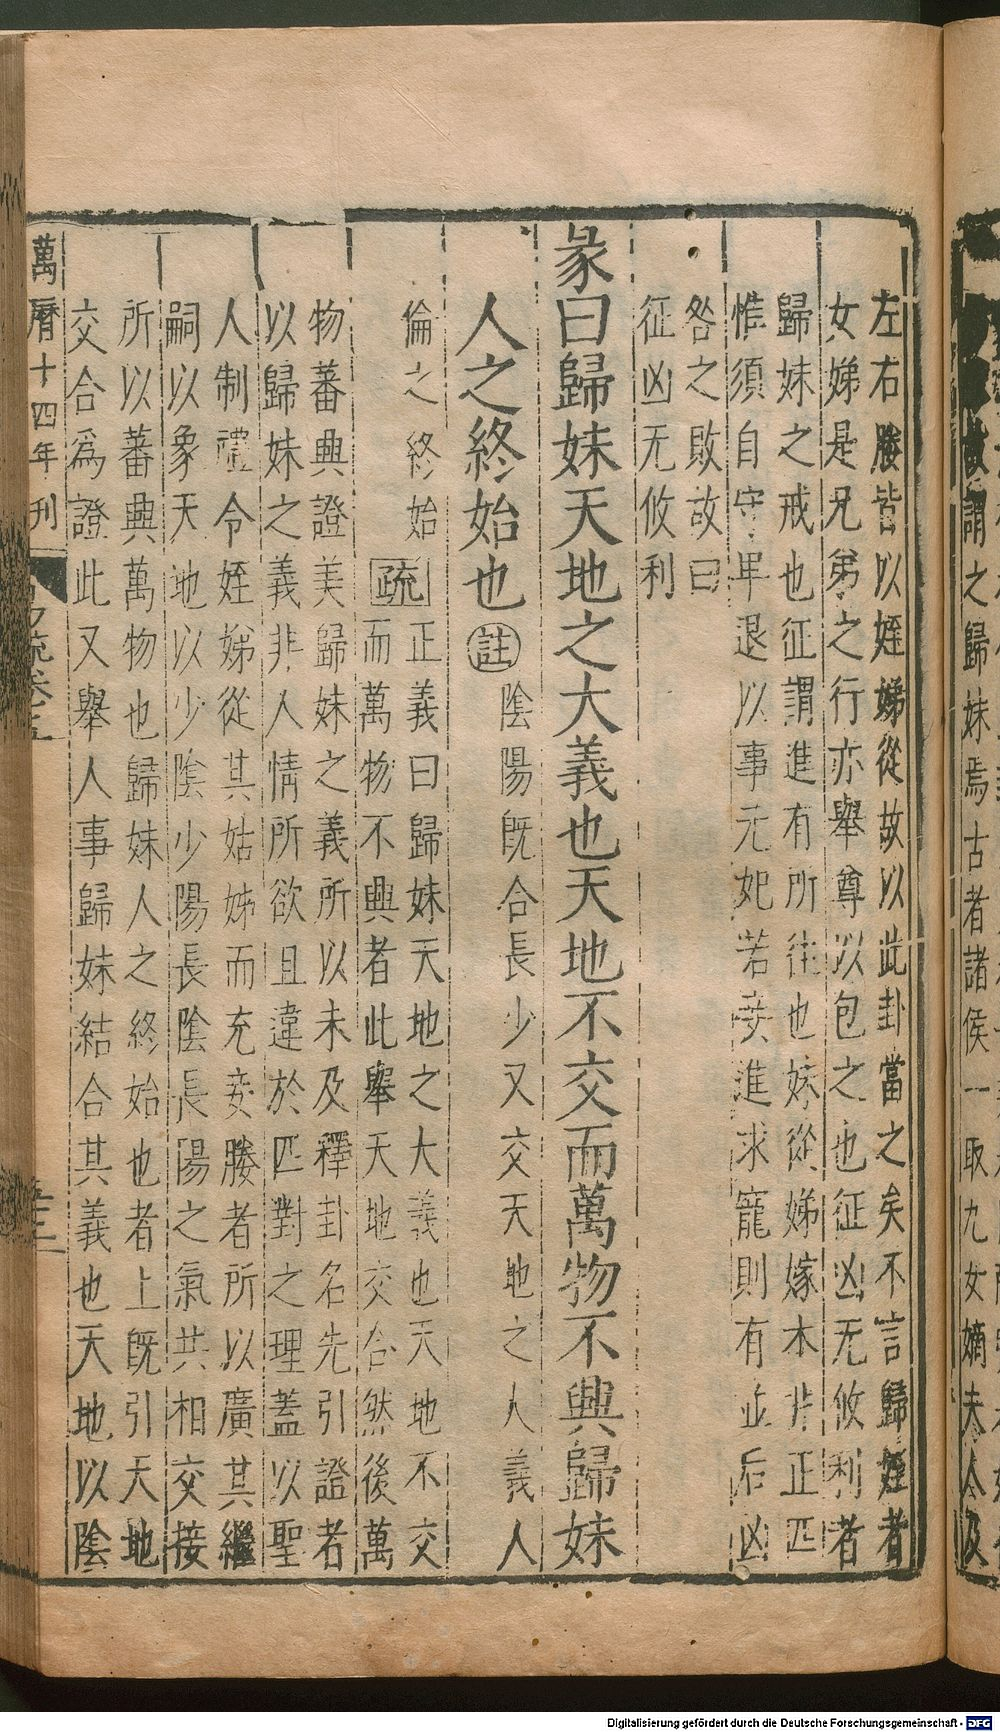 左右媵皆以姪娣從故以此卦當之矣不言歸姪者
女娣是兄弟之行亦舉尊以包之也征凶无攸利者
歸妹之戒也征謂進有所往也妹從娣嫁本非正匹
惟須自守卑退以事元妃若妄進求寵則有並后凶
咎之敗故曰
征凶无攸利
彖曰歸妹天地之大義也天地不交而萬物不興歸妹
人之終始也
註
陰陽旣合長少又交天地之大義人
倫之終始
疏
正義曰歸妹天地之大義也天地不交
而萬物不興者此舉天地交合然後萬
物蕃興證美歸妹之義所以未及釋卦名先引證者
以歸妹之義非人情所欲且違於匹對之理蓋以聖
人制禮令姪娣從其姑姊而充妾媵者所以廣其繼
嗣以象天地以少陰少陽長陰長陽之氣共相交接
所以蕃興萬物也歸妹人之終始也者上旣引天地
交合爲證此又舉人事歸妹結合其義也天地以陰
萬曆十四年刊
易疏卷五
謂之歸妹焉古者諸侯一取九女嫡夫人及
Digitalisierung gefördert durch die Deutsche Forschungsgemeinschaft - DFG